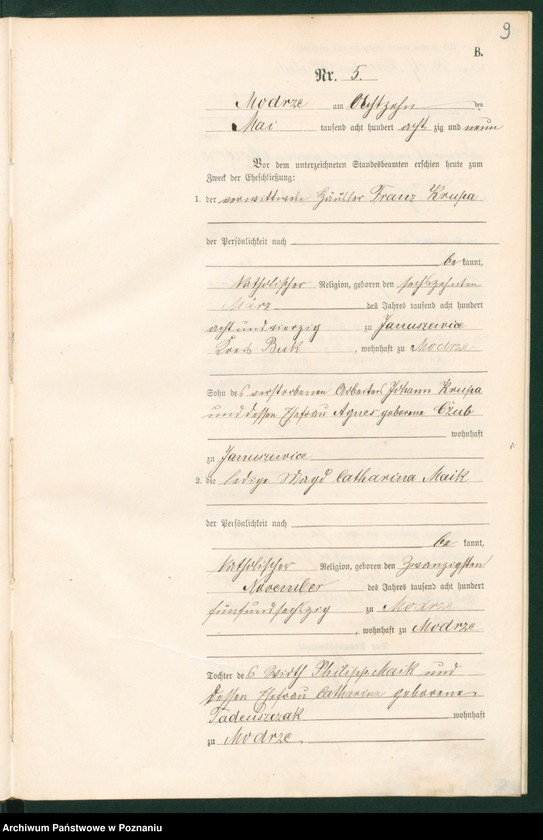 9
B.
Nr. 5.
Modrze am Achtzehn ten
Mai tausend acht hundert acht zig und neun
Vor dem unterzeichneten Standesbeamten erschien heute zum
Zweck der Eheschließung:
1. der verwittwete Häusler Franz Krupa
der Persönlichkeit nach
be kannt,
katholischer Religion, geboren den sechszehnten
März des Jahres tausend acht hundert
acht und vierzig zu Januszewice
Kreis Buk , wohnhaft zu Modrze
Sohn des verstorbenen Arbeiters Johann Krupa
und dessen Ehefrau Agnes geborene Czub
wohnhaft
zu Januszewice
2. die ledige Magd Catharina Maik
der Persönlichkeit nach
be kannt,
katholischer Religion, geboren den Zwanzigsten
November des Jahres tausend acht hundert
fünfundsechzig zu Modrze
, wohnhaft zu Modrze
Tochter des Wirth Philipp Maik und
dessen Ehefrau Catharina geborene
Tadeuszczak wohnhaft
zu Modrze.
Archiwum Państwowe w Poznaniu